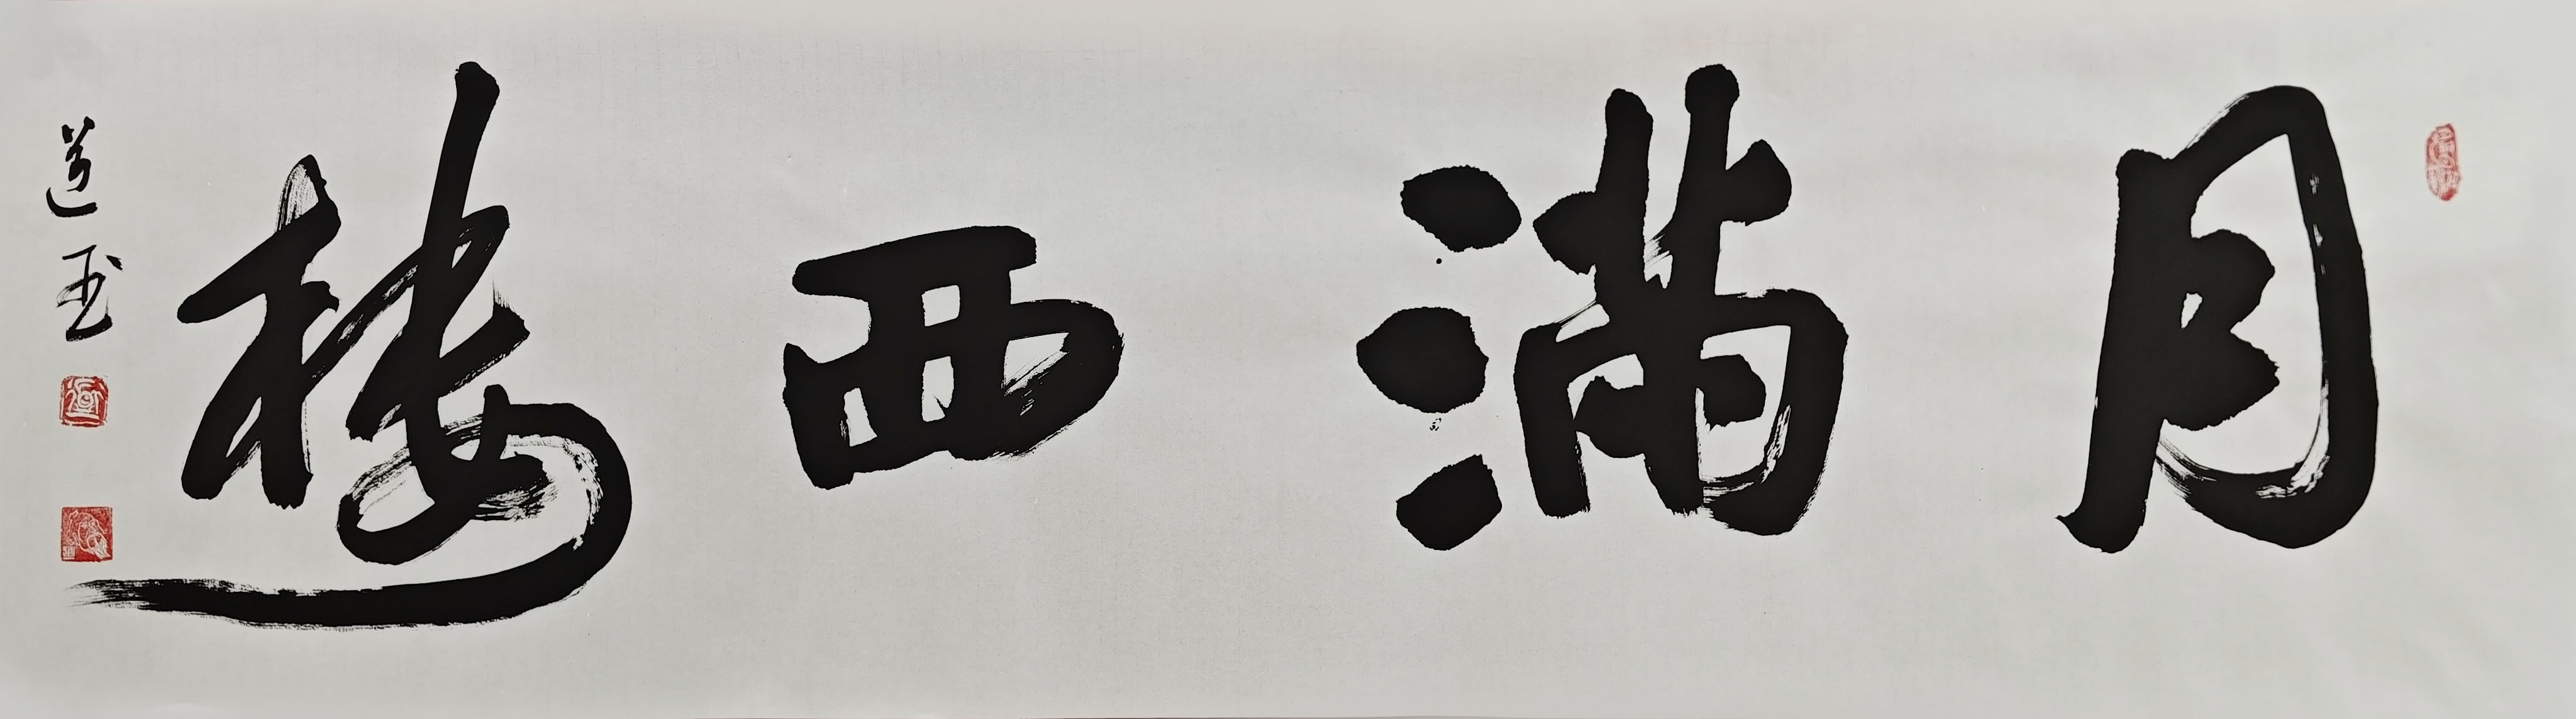 月滿西楼
道玉